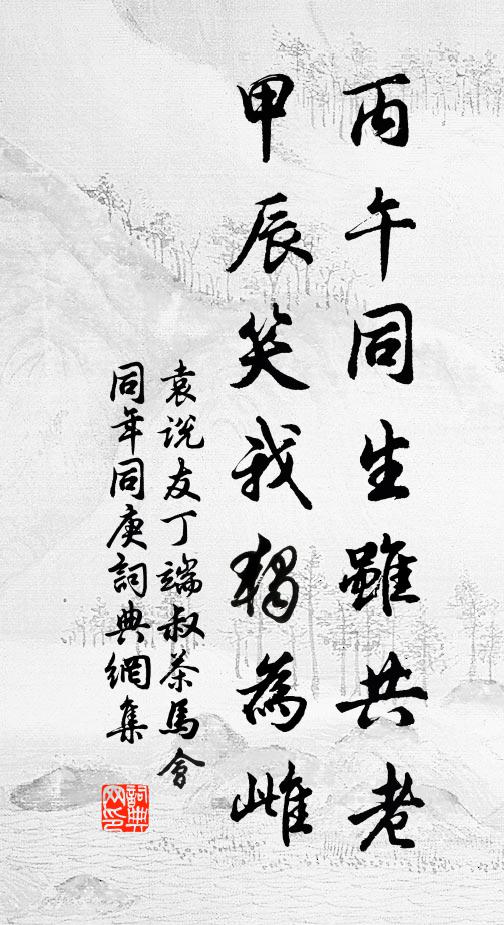 丙午同生雖共老
甲辰笑我獨為雌
袁説友丁端叔茶馬會
同年同庚詞典網集
詞典网印